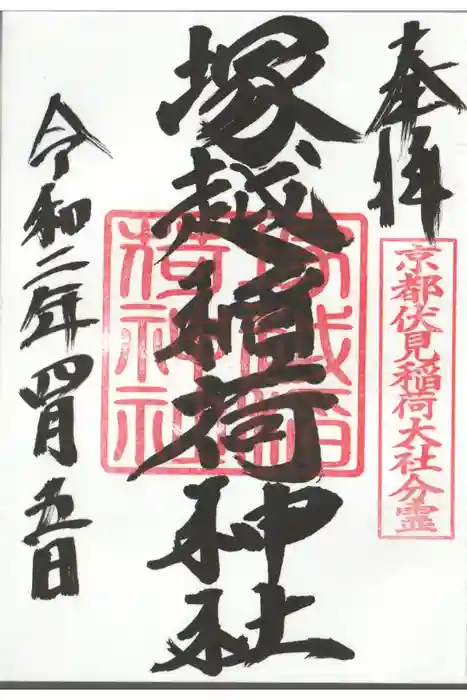 奉拝
京都伏見稲荷大社分霊
塚越稲荷神社
令和二年四月五日